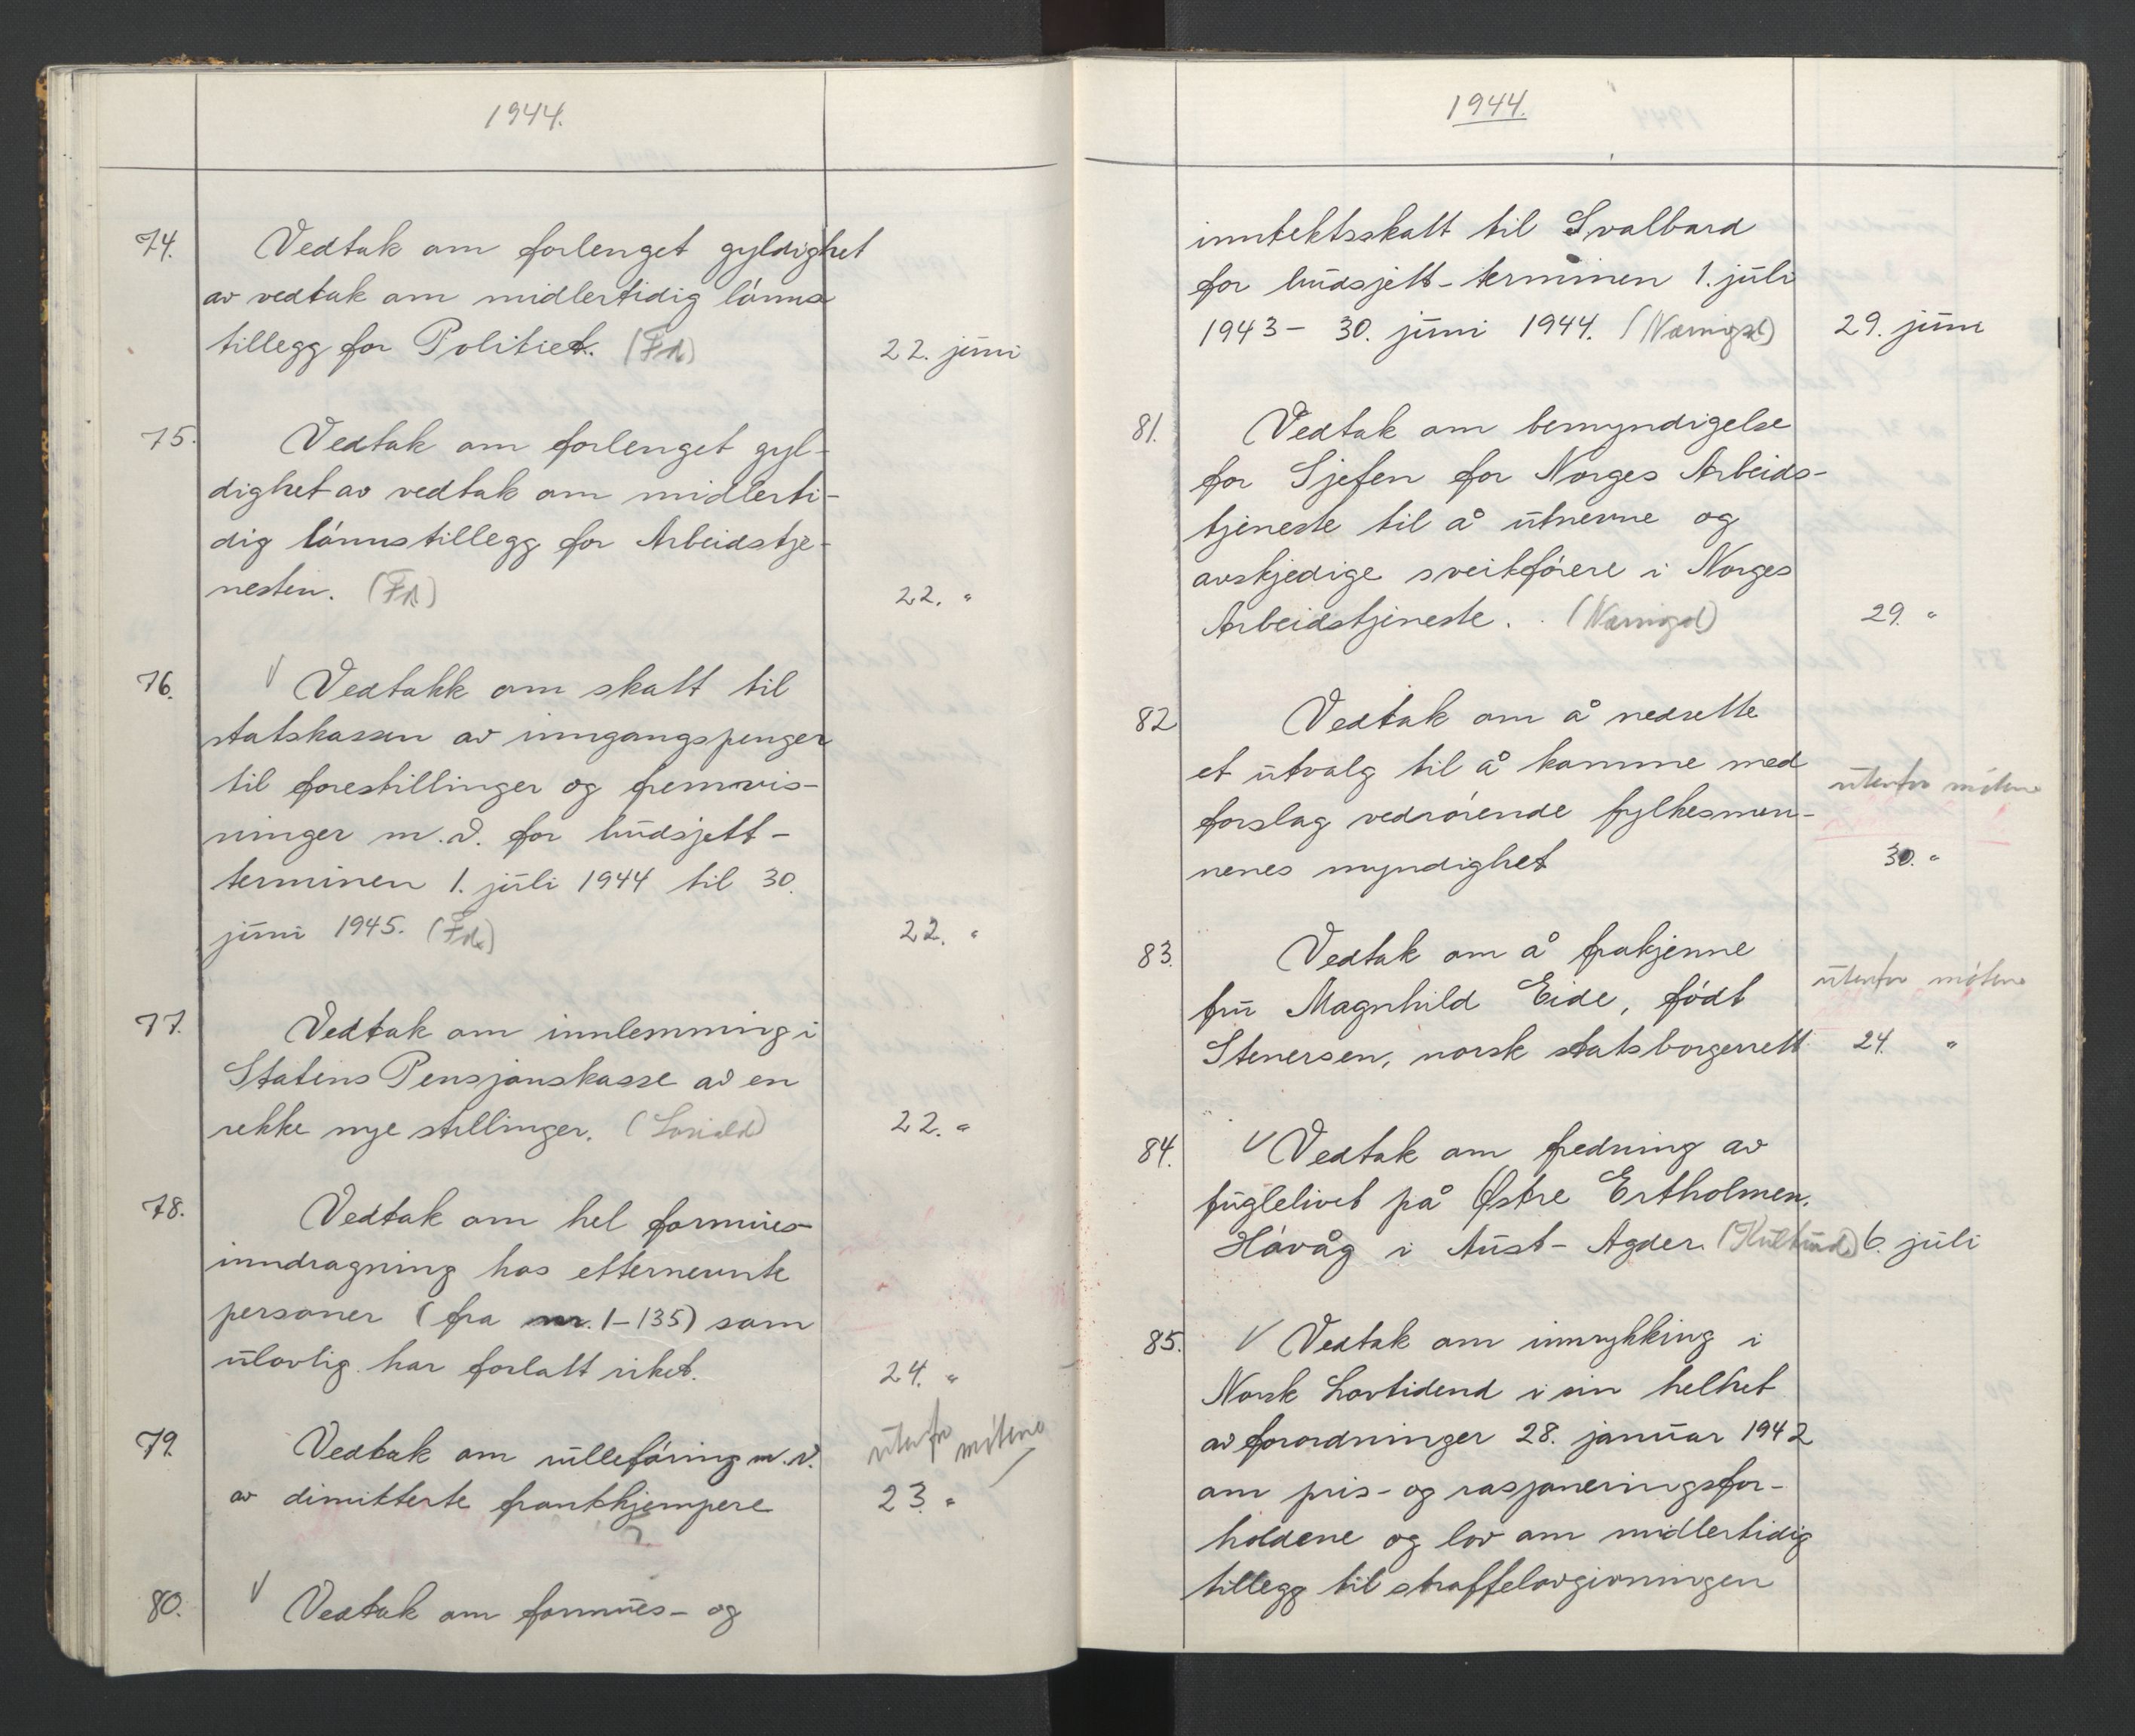 1944.
74. Vedtak om forlenget gyldighet
av vedtak om midlertidig lønns
tillegg for Politiet. (Fd) 22. juni
75. Vedtak om forlenget gyl-
dighet av vedtak om midlerti-
dig lønnstillegg for Arbeidstje-
nesten. (Fd) 22. "
76. V Vedtakk om skatt til
statskassen av inngangspenger
til forestillinger og fremvis-
ninger m.v. for budsjett-
terminen 1. juli 1944 til 30.
juni 1945. (Fd.) 22. "
77. Vedtak om innlemming i
Statens Pensjonskasse av en
rekke nye stillinger. (Sosiald) 22. "
78. Vedtak om hel formues-
inndragning hos etternevnte
personer (fra nr. 1-135) som
ulovlig har forlatt riket. 24. "
79. Vedtak om rulleføring m.v. utenfor møtene
av dimitterte frontkjempere 23. "
80. V Vedtak om formues- og
1944.
inntektsskatt til Svalbard
for budsjett-terminen 1. juli
1943 - 30. juni 1944. (Næringsd) 29. juni
81. Vedtak om bemyndigelse
for Sjefen for Norges Arbeids-
tjeneste til å utnevne og
avskjedige sveitførere i Norges
Arbeidstjeneste. (Næringsd) 29. "
82 Vedtak om å nedsette
et utvalg til å komme med utenfor møtene
forslag vedrørende fylkesmen-
nenes myndighet 30. "
83. Vedtak om å frakjenne
fru Magnhild Eide, født utenfor møtene
Stenersen, norsk statsborgerrett 24. "
84. V Vedtak om fredning av
fuglelivet på Østre Ertholmen,
Høvåg i Aust-Agder. (Kulturd.) 6. juli
85. V Vedtak om innrykking i
Norsk Lovtidend i sin helhet
av forordninger 28. januar 1942
om pris- og rasjoneringsfor-
holdene og lov om midlertidig
tillegg til straffelovgivningen